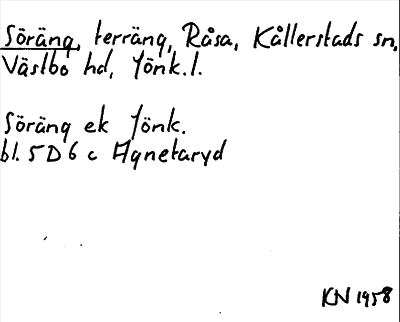 Söräng, terräng, Råsa, Kållerstads sn,
Västbo hd, Jönk.l.
Söräng ek Jönk.
bl. 5D6c Agnetaryd
KN 1958